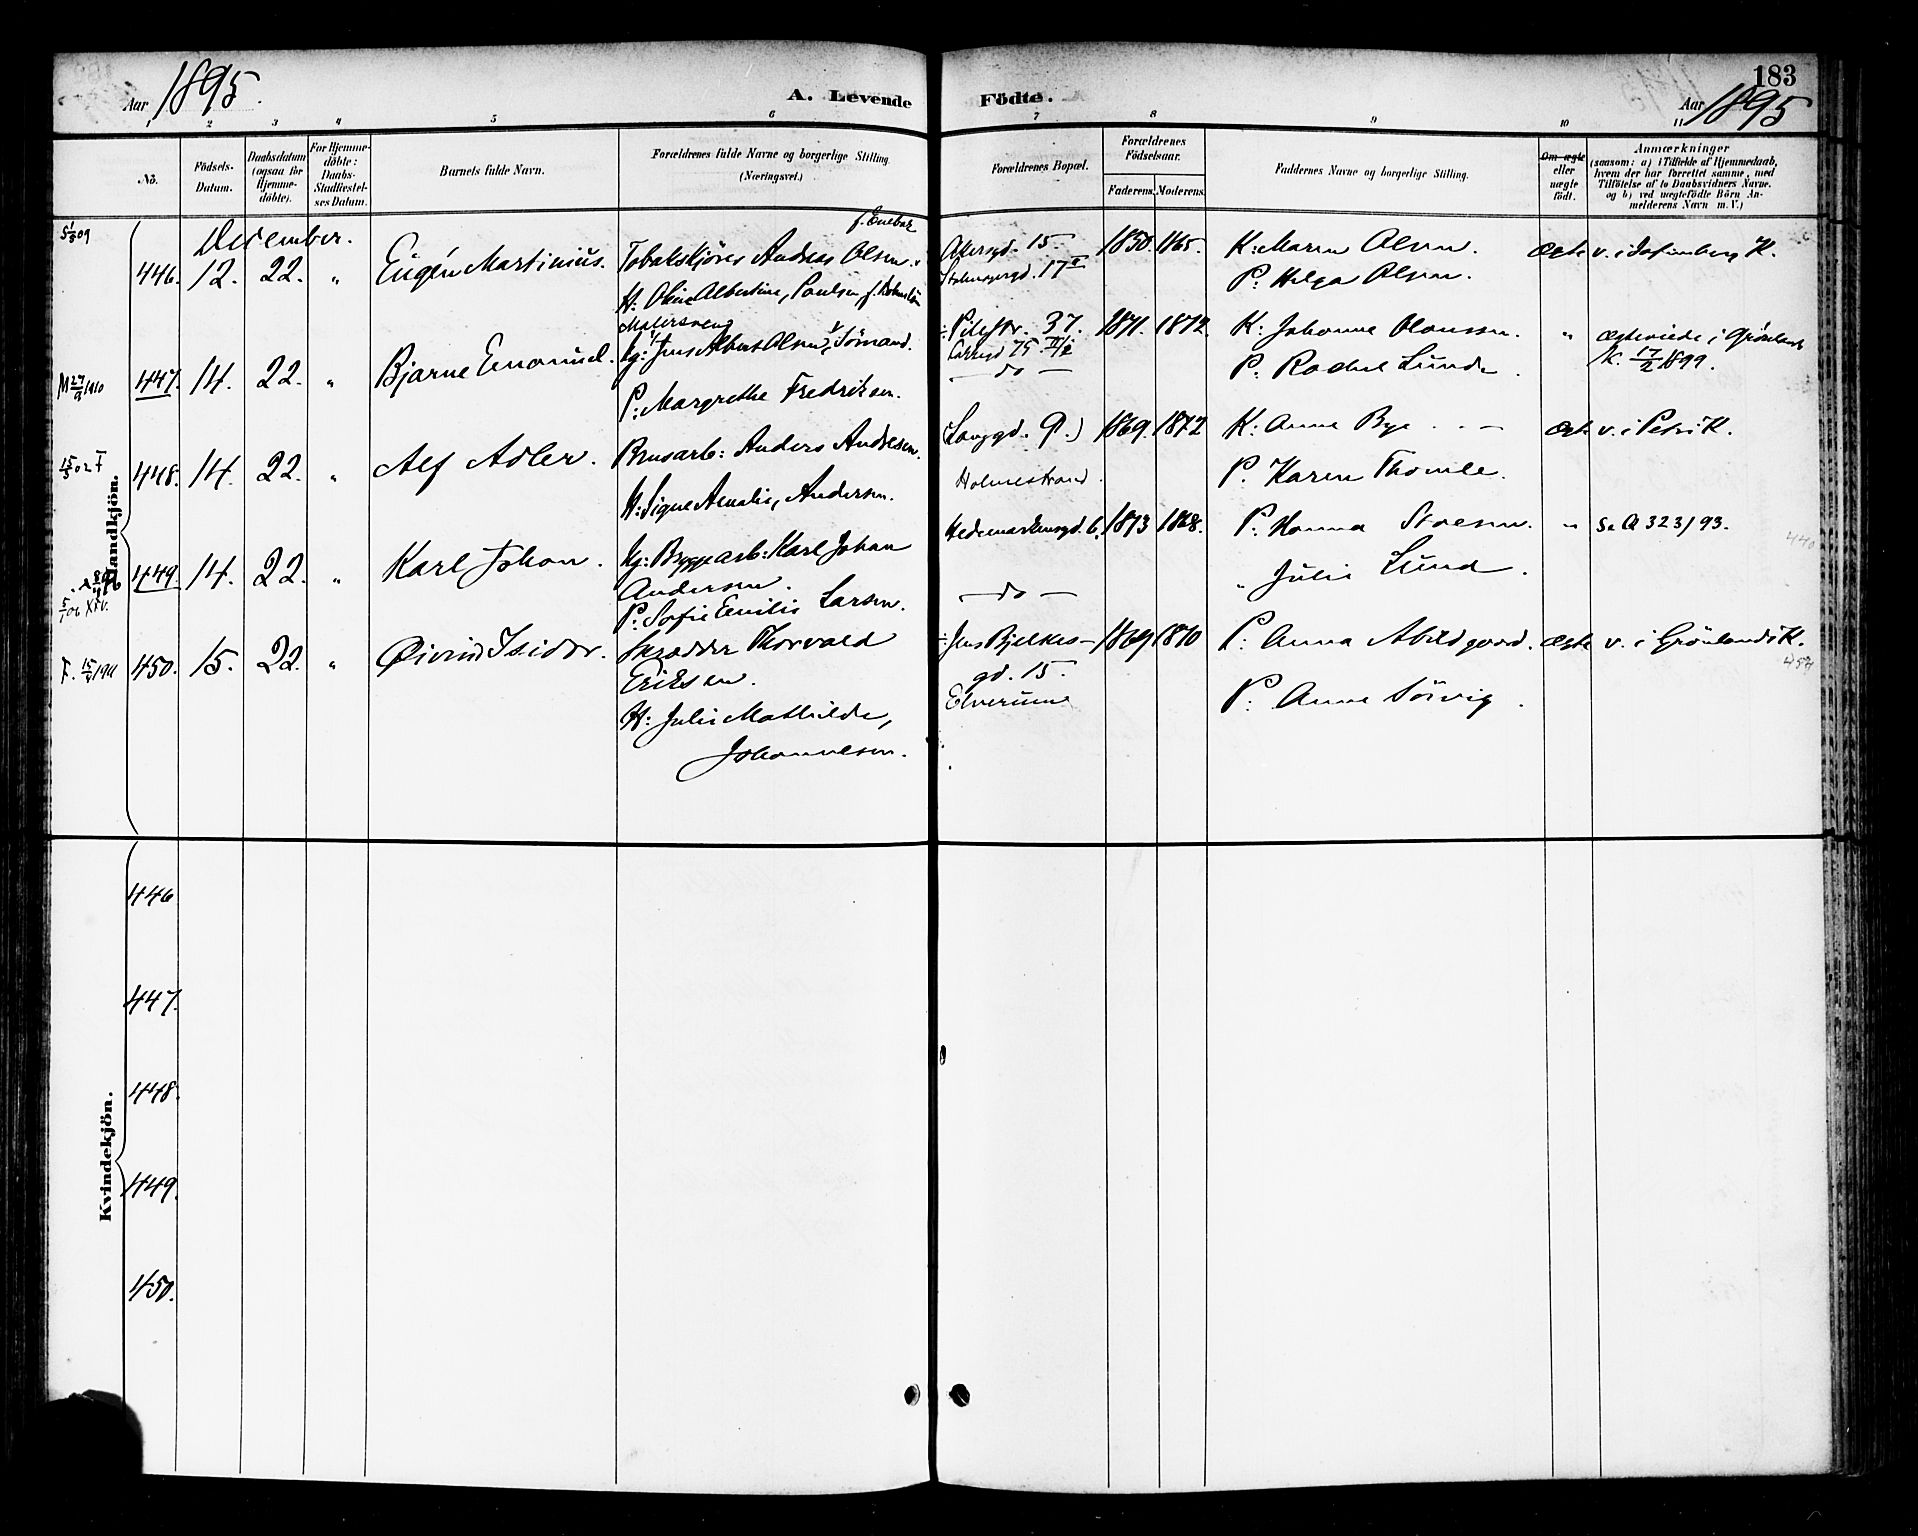 183
Aar 1895.
A. Levende Födte.
Aar 1895
1 2 3 4 5 6 7 8 9 10 11
No.
Födsels-Datum.
Daabsdatum (ogsaa for Hjemme-döbte).
For Hjemme-döbte: Daabs-Stadfæstel-ses Datum.
Barnets fulde Navn.
Forældrenes fulde Navne og borgerlige Stilling. (Næringsvei.)
Forældrenes Bopæl.
Forældrenes Födselsaar.
Faderens. Moderens.
Faddernes Navne og borgerlige Stilling.
Om ægte eller uægte födt.
Anmærkninger
(saasom: a) i Tilfælde af Hjemmedaab,
hvem der har forrettet samme, med
Tilföielse af to Daabsvidners Navne.
og b) ved uægtefödte Börn An-
melderens Navn m. V.)
Mandkjön.
December.
446. 12. 22. " Eugén Martinius. Andreas Olsen. f. Enebak
H: Oline Albertine, Paulsen f.
Akersgd. 15. 1850. 1865.
Holmensgd. 17 II
K: Maren Olsen.
P: Helga Olsen.
ægte v. i K.
M 27/9 1910
447. 14. 22. " Bjarne Emanuel.
Malersvend
Ug: Jens Albert Olsen, Sömand.
P: Margrethe Fredriksen.
Pilestr. 37. 1871. 1872
75
— do —
K: Johanne Olaussen.
P: Rachel Lunde.
" ægteviede i Grönlands
K. 17/2 1899.
448. 14. 22. " Alf Adler.
Brusarb: Anders Andresen.
H: Signe Amalie, Andersen.
(Langgd. 9.) 1869. 1872
Holmestrand.
K: Anna Bye
P. Karen Thomle.
ægte v. i Petri K.
449. 14. 22. " Karl Johan.
Ug: Byggearb: Karl Johan
Andersen.
P. Sofie Emilie Larsen.
Hedemarkensgd. 6. 1873 1868.
— do —
P: Hanna
" Julie Lund.
" Se A 323/93.
F. 15/ 1911
450. 15. 22. " Øivind Isidor.
Skrædder Thorvald
Eriksen.
H: Julie Mathilde,
Johannesen.
Jens Bjelkes- 1869 1870
gd. 15.
Elverum
P: Anna Abildgaard.
P: Anna Sörvig.
ægte v. i Grönlands K.
Kvindekjön.
446
447.
448.
449.
450.